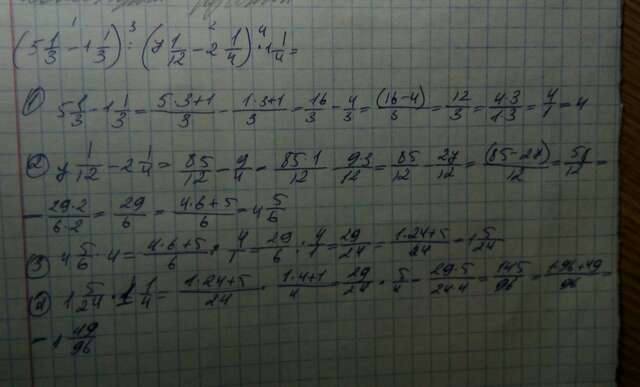 (5 1/3 - 1 1/3) : (7 1/12 - 2 1/4) · 1 1/4 =
1 3 2 4
1) 5 1/3 - 1 1/3 = 5·3+1/3 - 1·3+1/3 = 16/3 - 4/3 = (16-4)/3 = 12/3 = 4·3/1·3 = 4/1 = 4
2) 7 1/12 - 2 1/4 = 85/12 - 9/4 = 85·1/12 - 9·3/12 = 85/12 - 27/12 = (85-27)/12 = 58/12 =
= 29·2/6·2 = 29/6 = 4·6+5/6 = 4 5/6
3) 4 5/6 : 4 = 4·6+5/6 : 4/1 = 29/6 · 4/1 = 29/24 = 1·24+5/24 = 1 5/24
4) 1 5/24 · 1 1/4 = 1·24+5/24 · 1·4+1/4 = 29/24 · 5/4 = 29·5/24·4 = 145/96 = 1·96+49/96 =
= 1 49/96